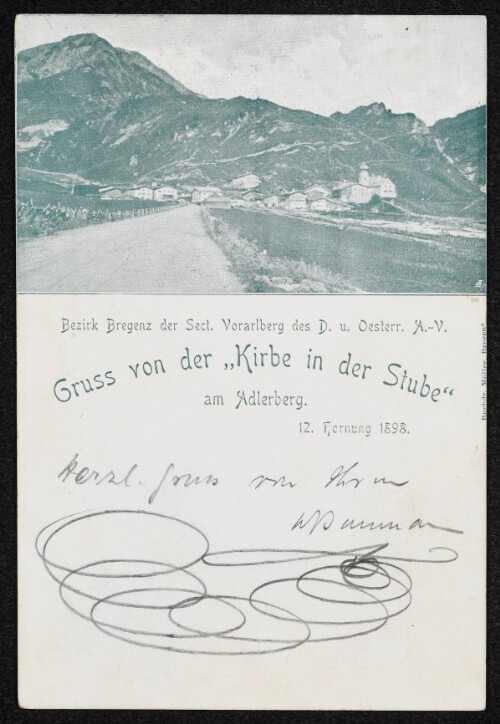 Bezirk Bregenz der Sect. Vorarlberg des D. u. Oesterr. A.-V.
Gruss von der „Kirbe in der Stube“
am Adlerberg.
12. Hornung 1898.
Herzl. Gruss von Ihrem
Buchdr. Müller, Bregenz